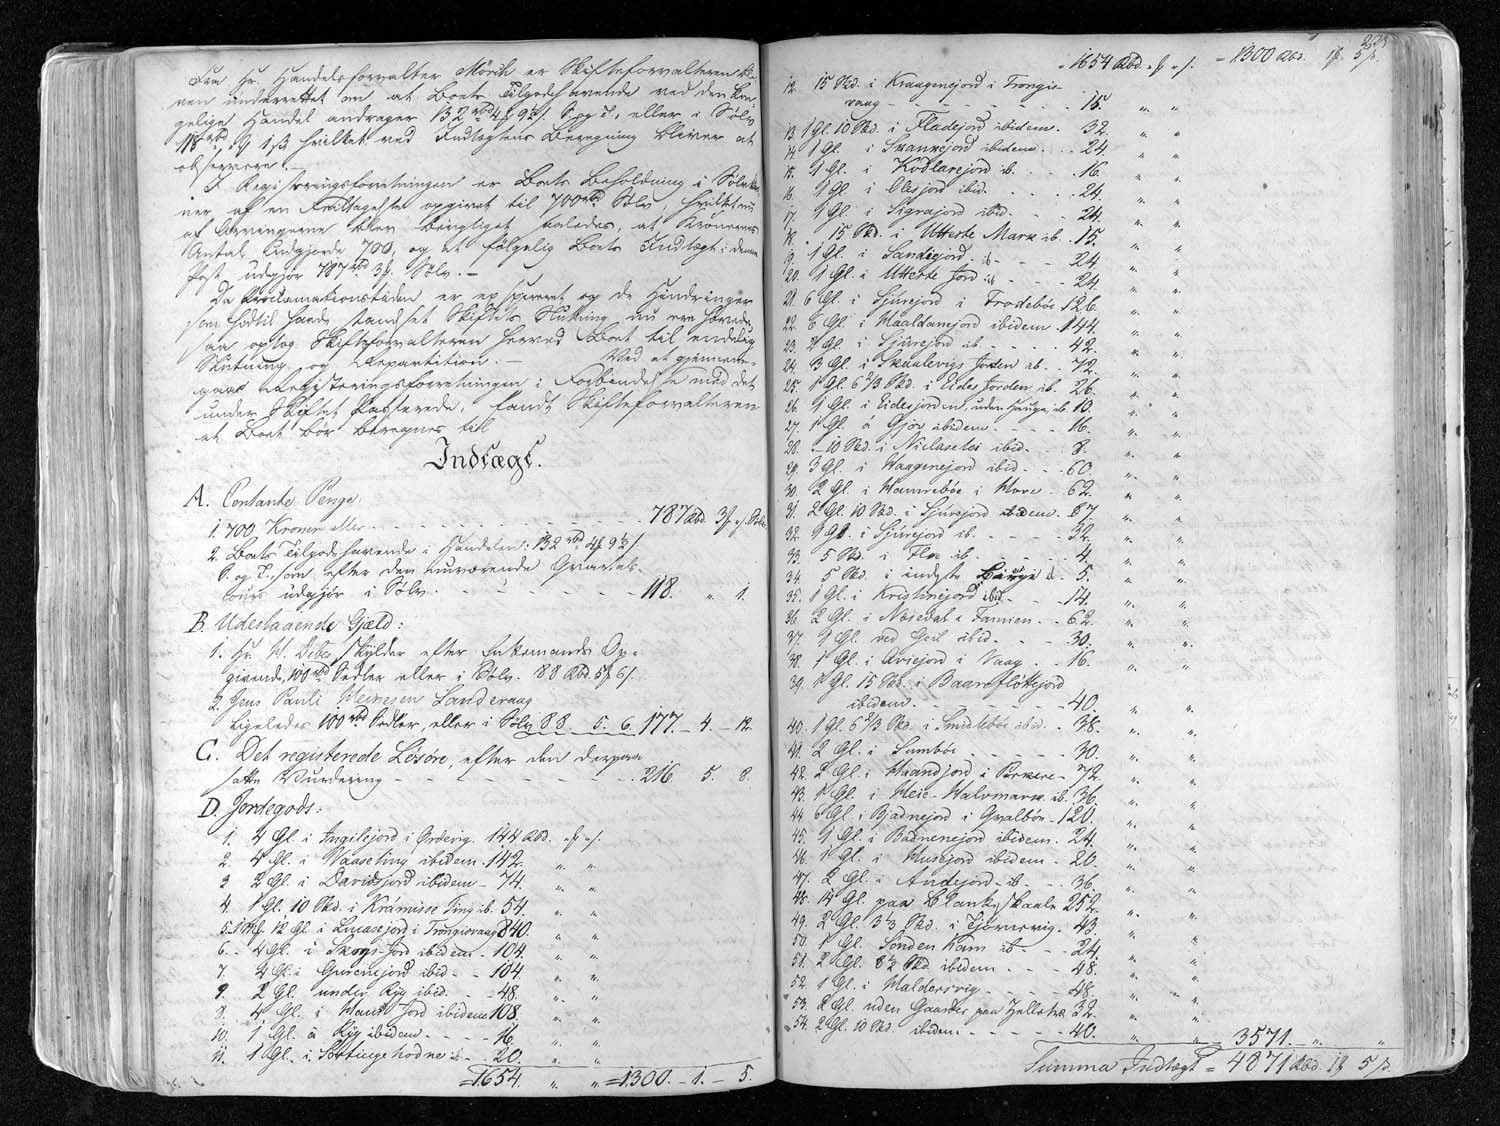 Fra Hr. Handelsforvalter Mörch er Skifteforvalteren
ven underrettet om at Boets Tilgodehavende ved den kon-
gelige Handel andrager 132 rbd 4 ƒ 9½ s. S. og T. eller i Sølv
118 rbd 1 s hvilket ved Indtægtens Beregning bliver at
observere.
I Registreringsforretningen er Boets Beholdning i Sølv
af en Feiltagelse opgivet til 700 rbd Sølv, hvilket nu
af Arvingerne blev berigtiget saaledes, at Kronernes
Antal udgjorde 700, og at følgelig Boets Indtægt i denne
Post udgjør 787 rbd 3 ƒ. Sølv.
Da Proclamationstiden er expireret og de Hindringer
som hidtil havde standset Skiftets Slutning, nu ere hævede,
saa optog Skifteforvalteren herved Boet til endelig
Slutning og Repartition. — Ved at gjennem-
gaae Registreringsforretningen i Forbindelse med det
under Skiftet Passerede, fandt Skifteforvalteren
at Boet bør beregnes til
Indtægt.
A. Contante Penge:
1. 700 Kroner eller - - - 787 Rbd. 3 ƒ " s. Sølv
2. Boets Tilgodehavende i Handelen: 132 rbd 4 ƒ 9½ s.
S. og T., som efter den nuværende Qvartals
Cours udgjør i Sølv - - - 118. " 1.
B. Udestaaende Gjæld:
1. Hr. skylder efter Enkemands Op-
givende, 100 rbd Sedler eller i Sølv 88 Rbd 5 ƒ 6 s.
2. Jens Pauli Meinesen Sandevaag
ligeledes 100 rbd Sedler, eller i Sølv 88 5. 6. 177. - 4 - 12.
C. Det registerede Lösöre, efter den derpaa
satte Vurdering - - - 216 5. 8.
D. Jordegods:
1. 4 Gl. i Ingilejord i Ordevig. 144 Rbd. " ƒ " s.
2. 4 Gl. i Vaaseting ibidem - 142. " "
3 2 Gl. i Davidsjord ibidem - 74. " "
4. 1 Gl. 10 Skd. i Krámisse Ting ib. 54. " "
5. 1 Mk. 12 Gl. i Lucasejord i Trongisvaag 840. " "
6. - 4 Gl. i Skogs-Jord ibidem - 104. " "
7. 4 Gl. i Gurenejord ibid - - 104. " "
9. 2 Gl. under Ryg ibid. - - 48. " "
8. 4 Gl. i Jord ibidem 108. " "
10. 1 Gl. à Ryg ibidem - - - 16. " "
11. 1 Gl. i Sottingehodne ib - - 20. " "
= 1654. " " = 1300. - 1. - 5.
= 1654 Rbd " ƒ " s. = 1300 Rbd. 1 ƒ 5 s.
12. 15 Skd. i Kraagenejord i Trongis-
vaag - - - 15. " "
13. 1 Gl. 10 Skd. i Fladejord ibidem. 32. " "
14. 1 Gl. i Skankejord ibidem. - - 24 " "
15. 1 Gl. i Kodlarejord ib. - - - 16. " "
16. 1 Gl. i Olesjord ibid. - - - 24. " "
17. 1 Gl. i Sigrajord ibid. - - - 24. " "
18. - 15 Skd. i Utterste Mark ib. 15. " "
19. 1 Gl. i Sandigjord ib - - - 24 " "
20. 1 Gl. i Utterste Jord ib - - - 24. " "
21. 6 Gl. i Sjúrejord i Frodebøe 126. " "
22. 6 Gl. i Maaldamejord ibidem. 144. " "
23. 2 Gl. i Sjúrejord ib. - - - 42. " "
24. 3 Gl. i Skaalevigs Jorden ib. - 72. " "
25. 1 Gl. 6 2/3 Skd. i Eides Jorden ib. 26. " "
26. 1 Gl. i Eidesjorden, uden Hauge, ib. 10. " "
27. 1 Gl. à Gjøv ibidem. - - - 16. " "
28. - 10 Skd. i Niclaselei ibid - - 8. " "
29. 3 Gl. i Vaagenejord ibid - - 60. " "
30. 2 Gl. i Hamrebøe i Hove - - 62. " "
31. 2 Gl. 10 Skd. i Sjúrejord ibidem. 67 " "
32. 1 Gl. i Sjúrejord ib. - - - 32. " "
33. 5 Skd. i Floe ib. - - - 4. " "
34. 5 Skd. i indgte ib. - 5. " "
35. 1 Gl. i Kristinejord ibid. - - 14. " "
36. 2 Gl. i Nøsedal i Famien. - 62. " "
37. 1 Gl. ved Geil ibid. - - - 30. " "
38. 1 Gl. i Qviejord i Vaag - - 16. " "
39. 1 Gl. 15 Skd. i Baarsfløttejord
ibidem. - - - 40. " "
40. 1 Gl. 6 2/3 Skd. i Smidlebøe ibid. - 38. " "
41. 2 Gl. i Sumbøe - - - 30. " "
42. 2 Gl. i Haandjord i Porkere - 72. " "
43. 1 Gl. i Heie-Halvmark ib. 36. " "
44 6 Gl. i Bjadnejord i Qvalbøe - 120. " "
45. 1 Gl. i Badnenejord ibidem. - 24. " "
46. 1 Gl. i Husejord ibidem - 20. " "
47. 2 Gl. i Andejord, ib. - - - 36. " "
48. 14 Gl. paa Blankskaale 252. " "
49. 2 Gl. 3⅓ Skd. i Tjørnevig. - 43. " "
50. 1 Gl. Sønden Kam ib - - - 24. " "
51. 2 Gl. 8½ Skd ibidem - - - 48. " "
52. 1 Gl. i Haldersvig - - - 48. " "
53. 2 Gl. uden Gaarder paa Hellstræ 32. " "
54. 2 Gl. 10 Skd. ibidem. - - - 40. " " = 3571. - " - "
Summa Indtægt = 4871 Rbd. 1 ƒ 5 s.